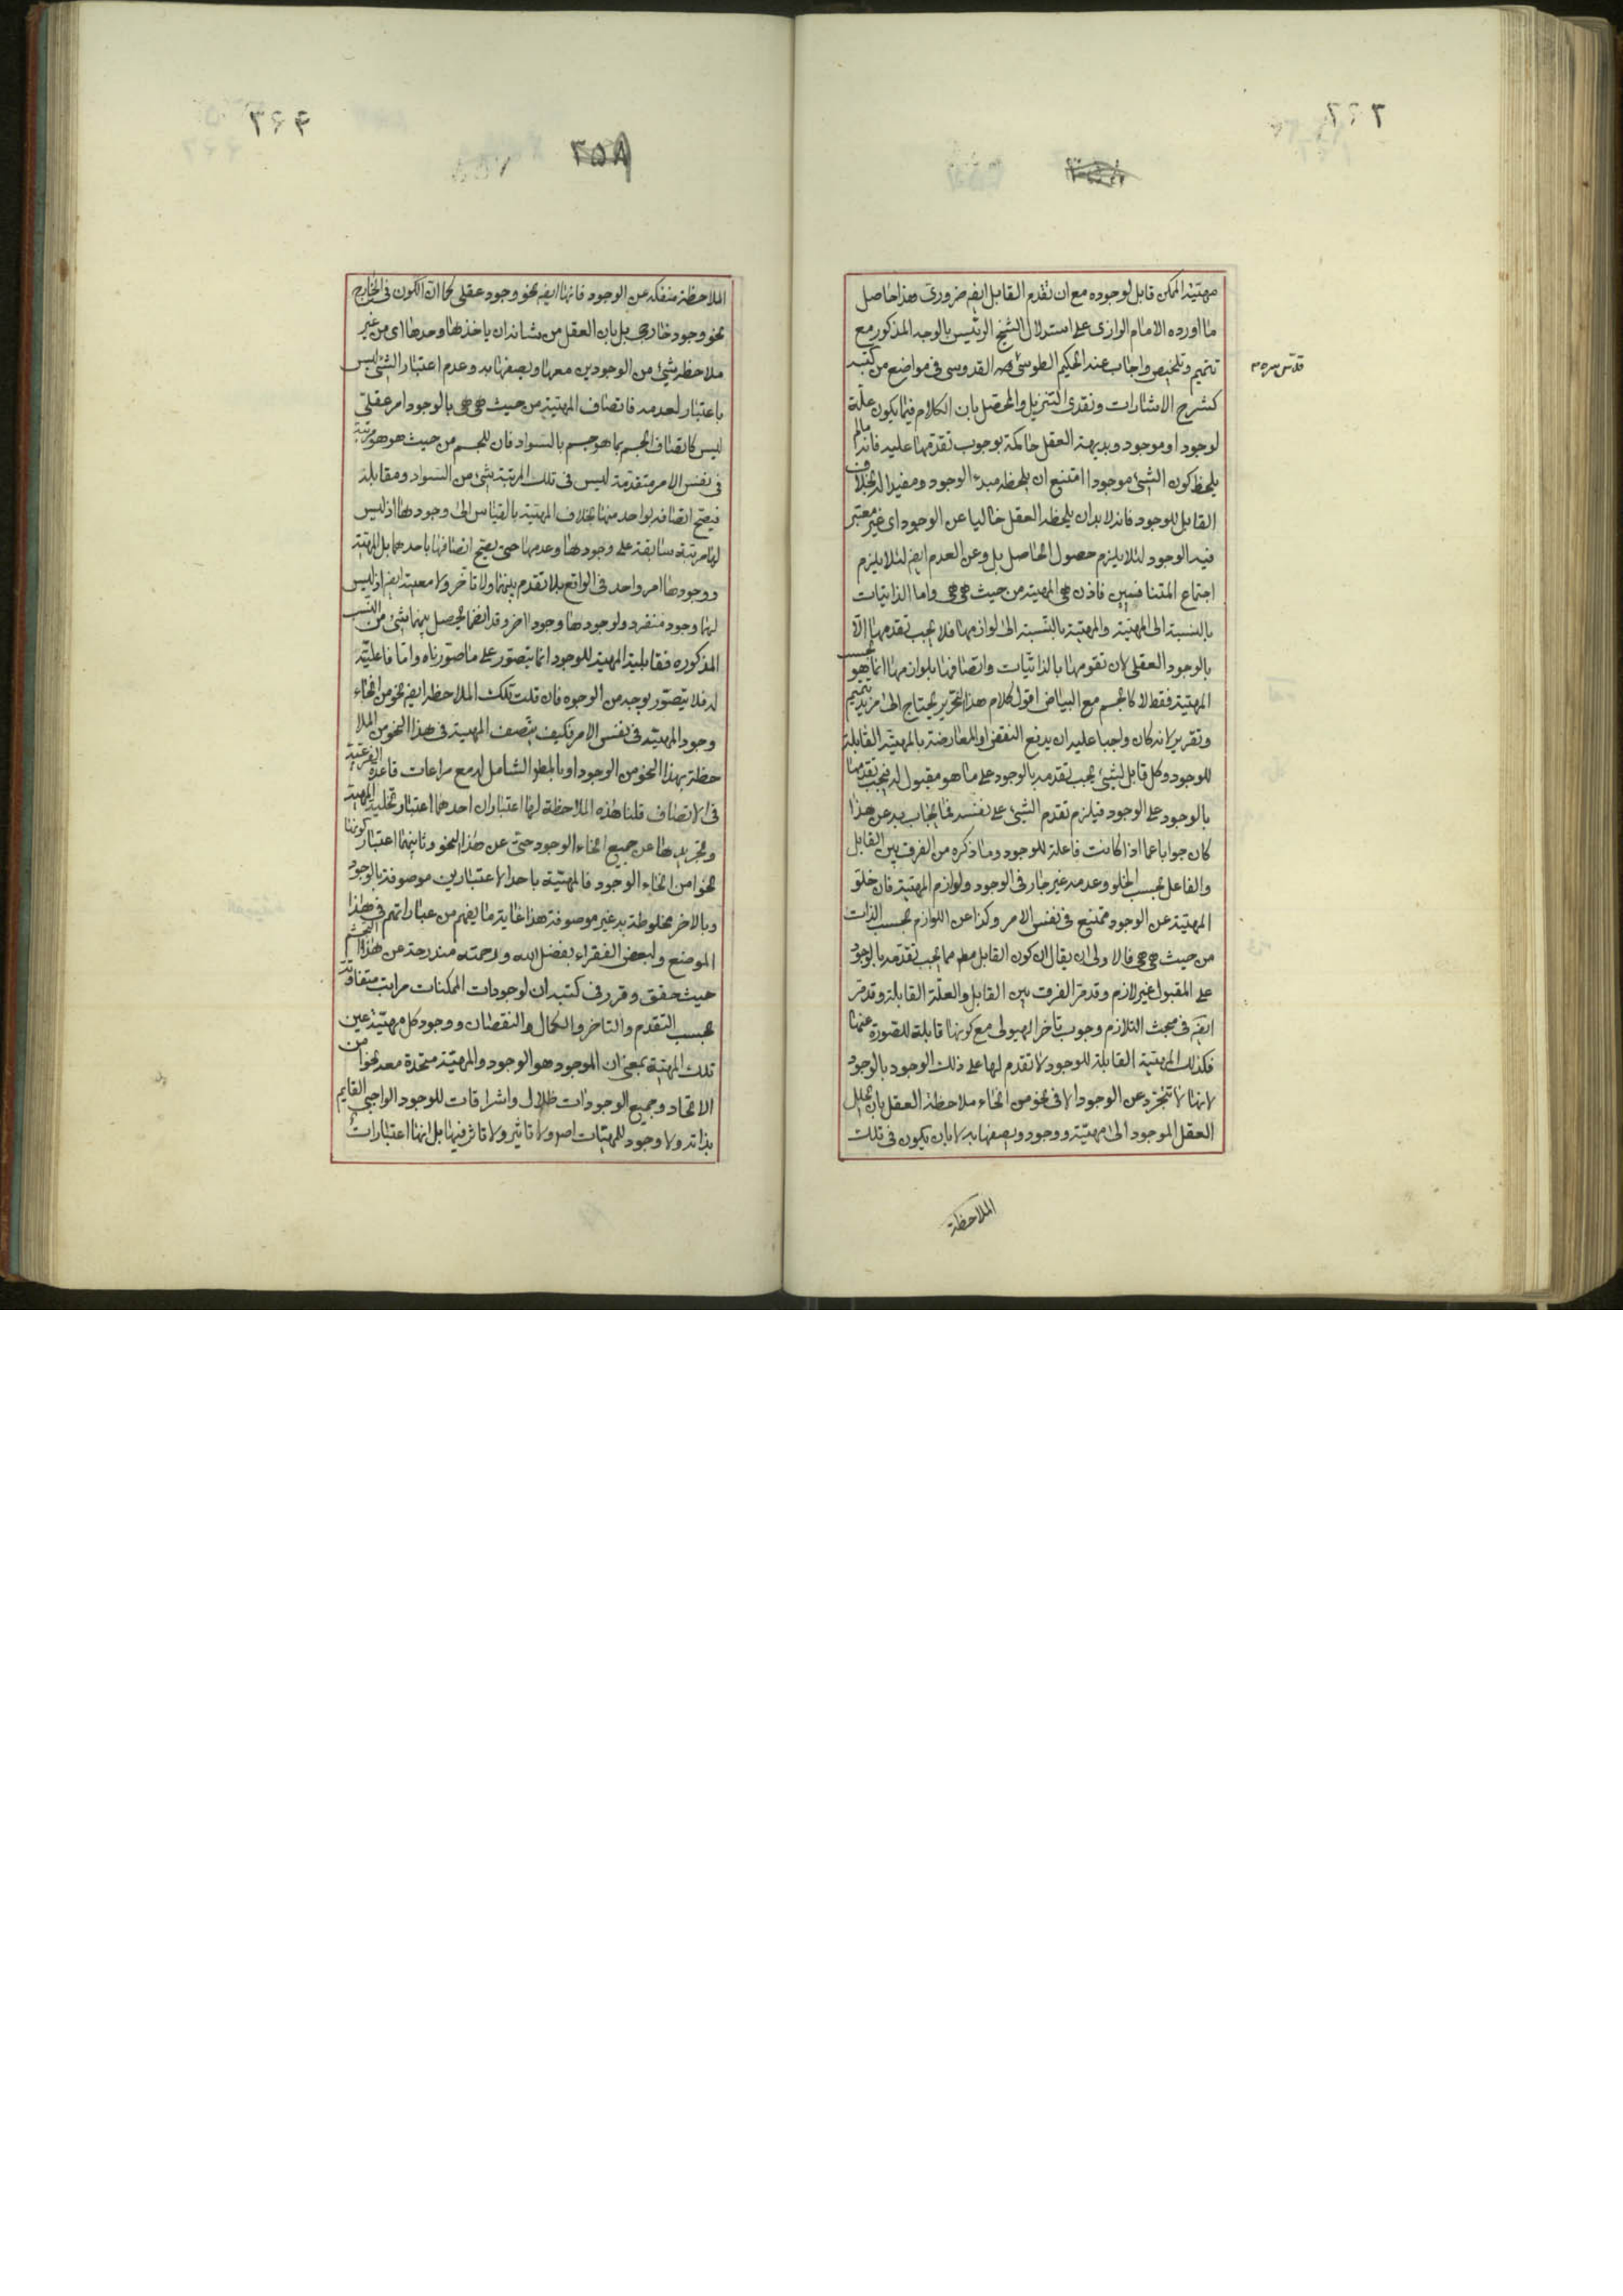 ٣٦٣
مهيّة الممكن قابل لوجوده مع ان تقدم القابل ايضه ضرورى هذا حاصل
ما اورده الامام الرازى على استدلال الشيخ الرئيس بالوجه المذكور مع
تتميم وتلخيص واجاب عنه الحكيم الطوسى القدوسى فى مواضع من كتبه
قدّس سره
كشرح الاشارات ونقدى التنزيل والمحصّل بان الكلام فيما يكون علة
لوجود او موجود وبديهة العقل حاكمة بوجوب تقدمها عليه فانه مالم
يلحظ كون الشئ موجودا امتنع ان يلحظه مبدء الوجود ومفيدا له بخلاف
القابل للوجود فانه لابد ان يلحظه العقل خاليا عن الوجود اى غير معتبر
فيه الوجود لئلا يلزم حصول الحاصل بل وعن العدم ايضه لئلا يلزم
اجتماع المتنافيين فاذن هى المهية من حيث هى هى واما الذاتيات
بالنسبة الى المهيّة والمهيّة بالنّسبة الى لوازمها فلا يجب تقدمها الّا
بالوجود العقلى لان تقومها بالذاتيّات واتصافها بلوازمها انما هو بحسب
المهيّة فقط لا كالجسم مع البياض اقول كلام هذا التحرير يحتاج الى مزيد تتميم
وتقرير لانه كان واجبا عليه ان يدفع النقض او المعارضة بالمهيّة القابلة
للوجود وكل قابل لشئ يجب تقدمه بالوجود على ما هو مقبول له فيجب تقدمها
بالوجود على الوجود فيلزم تقدم الشئ على نفسه فما يجاب به عن هذا
كان جوابا عما اذا كانت فاعلة للوجود وما ذكره من الفرق بين القابل
والفاعل بحسب الخلو وعدمه غير جار فى الوجود ولوازم المهيّة فان خلو
المهيّة عن الوجود ممتنع فى نفس الامر وكذا عن اللوازم بحسب الذات
من حيث هى هى فالاولى ان يقال ان كون القابل مطه مما يجب تقدمه بالوجود
على المقبول غير لازم وقد مرّ الفرق بين القابل والعلّة القابلة وقد مرّ
ايضه فى مبحث التلازم وجوب تأخر الهيولى مع كونها قابلة للصّورة عنها
فكذلك المهيّة القابلة للوجود لا تقدم لها على ذلك الوجود بالوجود
لانها لا تتجرّد عن الوجود الا فى نحو من انحاء ملاحظة العقل بان يحلل
العقل الموجود الى مهيّة ووجود ويصفها به لا بان يكون فى تلك
الملاحظة
٣٦٤
٣٥٨
الملاحظة منفكه عن الوجود فانها ايضه نحو وجود عقلى كما ان الكون فى الخارج
نحو وجود خارجى بل بان العقل من شانه ان ياخذها وحدها اى من غير
ملاحظة شئ من الوجودين معها ويصفها به وعدم اعتبار الشئ ليس
باعتبار لعدمه فاتصاف المهيّة من حيث هى هى بالوجود امر عقلى
ليس كاتصاف الجسم بما هو جسم بالسواد فان للجسم من حيث هو هو مرتبة
فى نفس الامر متقدمة ليس فى تلك المرتبة شئ من السواد ومقابله
فيصح اتصافه بواحد منها بخلاف المهيّة بالقياس الى وجودها اذ ليس
لها مرتبة سابقة على وجودها وعدمها حتى يصح اتصافها باحدهما بل المهيّة
ووجودها امر واحد فى الواقع بلا تقدم بينهما ولا تأخر ولا معية ايضه اذ ليس
لها وجود منفرد ولوجودها وجود اخر وقد انضما ليحصل بينهما شئ من النسب
المذكوره فقابلية المهية للوجود انما يتصور على ما صورناه وامّا فاعليّة
له فلا يتصوّر بوجه من الوجوه فان قلت تلك الملاحظة ايضه نحو من انحاء
وجود المهيّة فى نفس الامر فكيف يتّصف المهيّة فى هذا النحو من الملا
حظة بهذا النحو من الوجود او بالمطو الشامل له مع مراعات قاعدة الفرعيّة
فى الاتصاف قلنا هذه الملاحظة لها اعتباران احدهما اعتبار تخلية المهيّة
وتجريدها عن جميع انحاء الوجود حتى عن هذا النحو وثانيهما اعتبار كونها
نحوا من انحاء الوجود فالمهيّة باحد الاعتبارين موصوفة بالوجود
وبالاخر مخلوطة به غير موصوفة هذا غاية ما يفهم من عباراتهم فى هذا
الموضع ولبعض الفقراء بفضل الله ورحمته مندرجة عن هذا التجشم
حيث حقق وقرر فى كتبه ان لوجودات الممكنات مراتب متفاوتة
بحسب التقدم والتاخر والكمال والنقصان ووجود كل مهيّة عين
تلك المهيّة بمعنى ان الموجود هو الوجود والمهيّة متحدة معه نحوا من
الاتحاد وجميع الوجودات ظلال واشراقات للوجود الواجبى القايم
بذاته ولا وجود للمهيّات اصه ولا تاثير ولا تاثر فيها بل انها اعتبارات